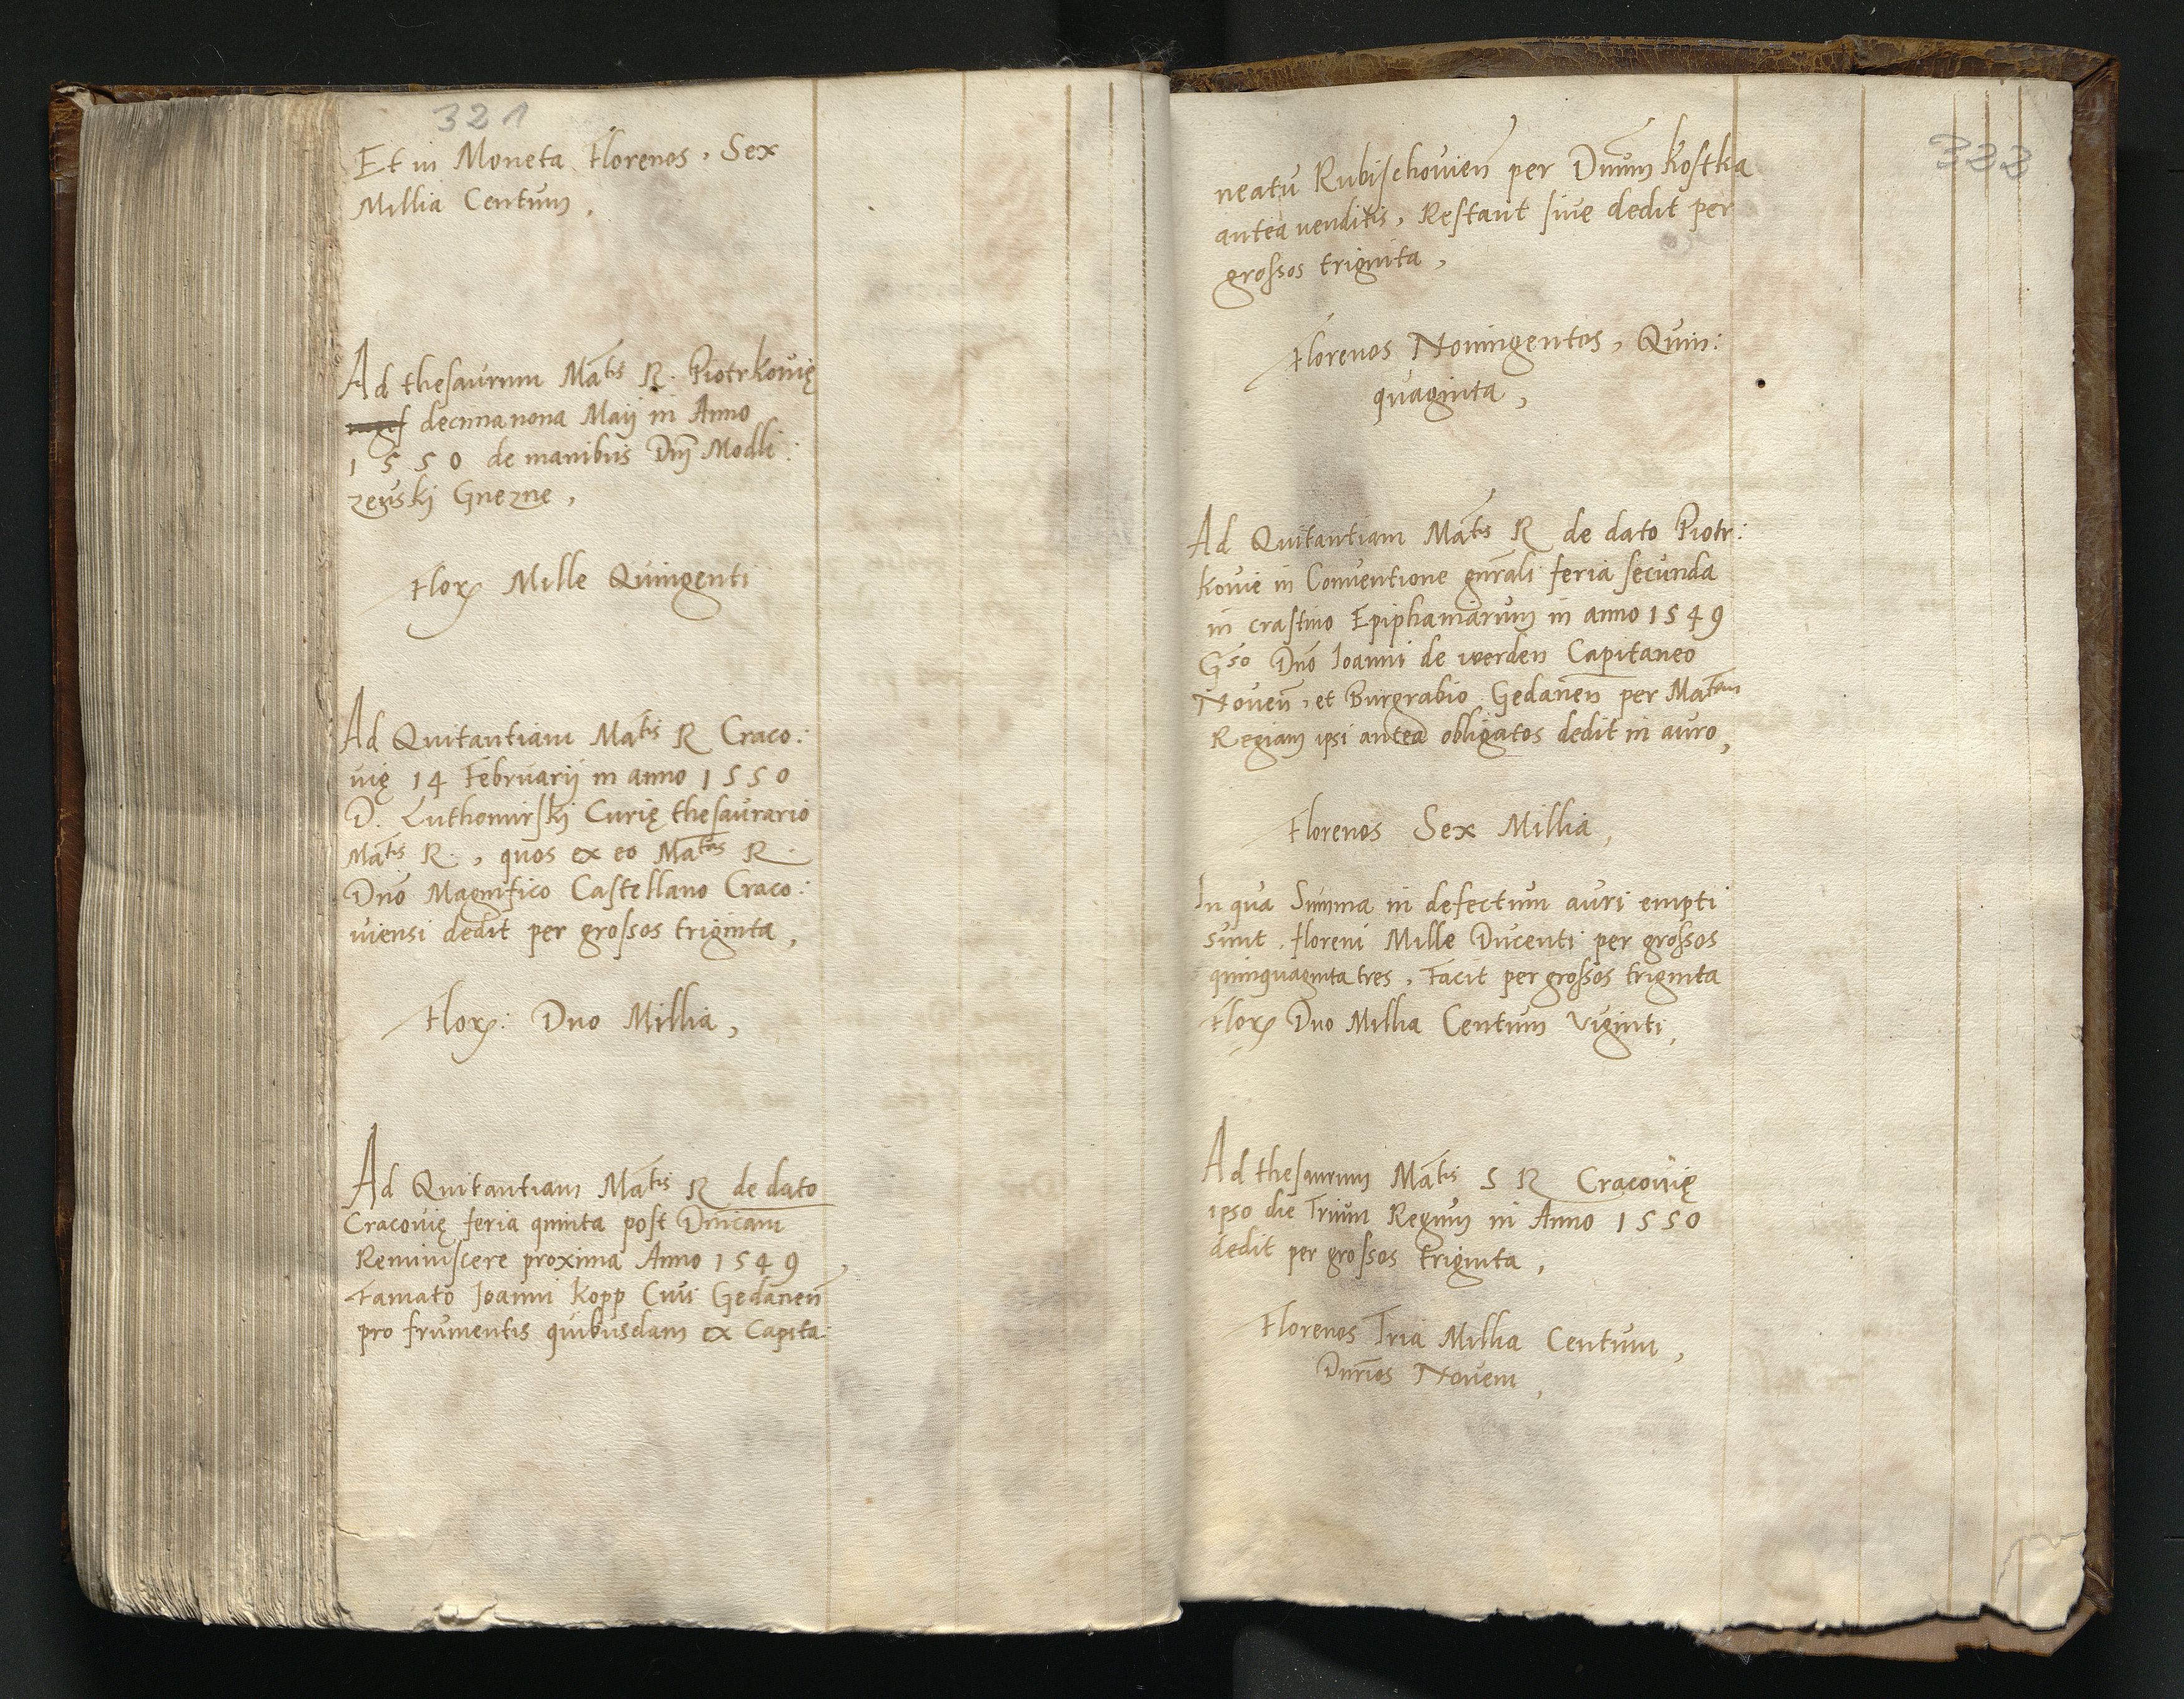 321
Et in Moneta Florenos, Sex
Millia Centum,
Ad thesaurum Matis R. Piotrkovię
decima nona Maij in Anno
1550 de manibus Dnj Modli:
zewskj Gnezne,
Flor Mille Quingenti
Ad Quitantiam Matis R Craco:
vię 14 Februarij in anno 1550
D. Luthomirskj Curię thesaurario
Matis R., quos ex eo Matas R.
Dno Magnifico Castellano Craco:
viensi dedit per grossos triginta,
Flor: Duo Millia,
Ad Quitantiam Matis R de dato
Cracovię feria quinta post Dnicam
Reminiscere proxima Anno 1549
Famato Joanni Kopp Civi Gedanen
pro frumentis quibusdam ex Capita:
322
neatu Rubischovien per Dnum Kostka
antea venditis, Restant sive dedit per
grossos triginta,
Florenos Noningentos, Quin:
quaginta,
Ad Quitantiam Matis R de dato Piotr:
kovie in Conventione gnrali feria secunda
in crastino Epiphaniarum in anno 1549
Gso Dno Joanni de werden Capitaneo
Noven, et Burgrabio Gedanen per Matem
Regiam ipsi antea obligatos dedit in auro,
Florenos Sex Millia,
In qua Summa in defectum auri empti
sunt Floreni Mille Ducenti per grossos
quinquaginta tres, Facit per grossos triginta
Flor Duo Millia Centum Viginti,
Ad thesaurum Matis S R Cracovię
ipso die Trium Regum in Anno 1550
dedit per grossos triginta,
Florenos Tria Millia Centum,
Durios Novem,